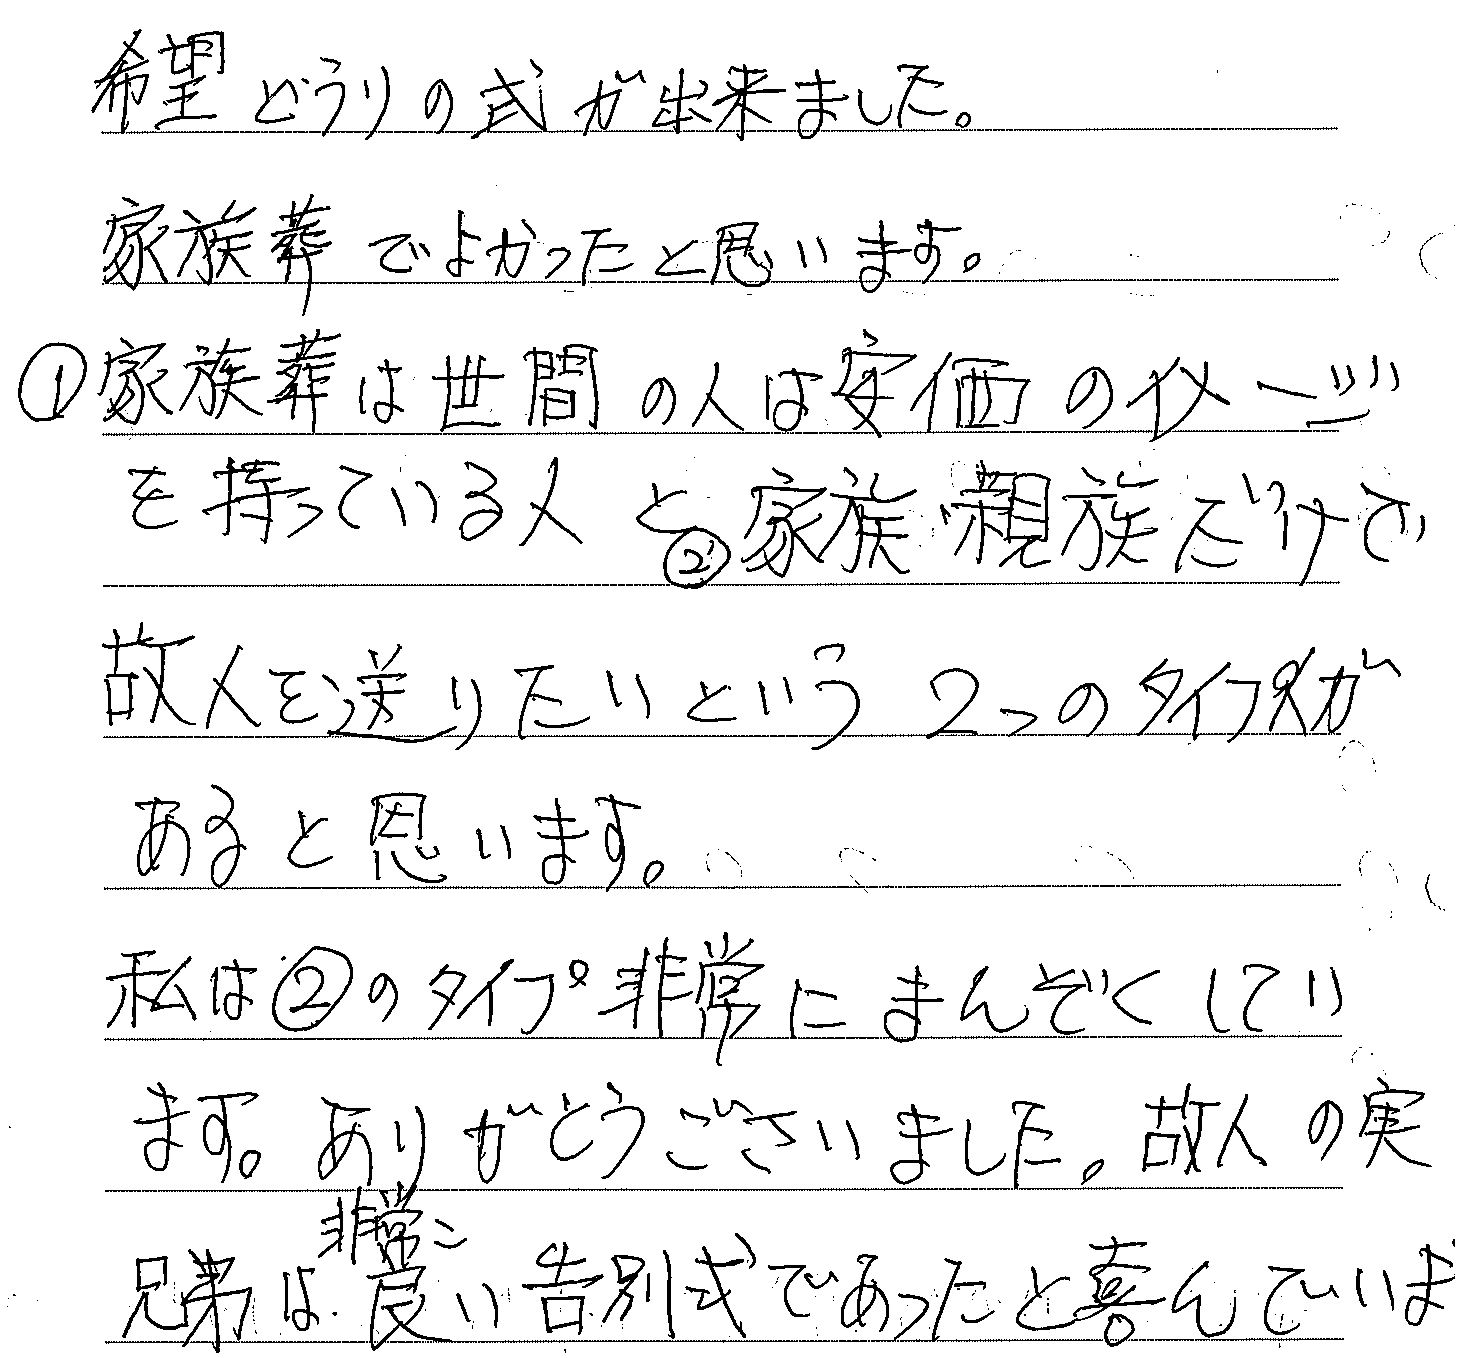 希望どうりの式が出来ました。
家族葬でよかったと思います。
①家族葬は世間の人は安価のイメージ
を持っている人と②家族親族だけで
故人を送りたいという2つのタイプが
あると思います。
私は②のタイプ非常にまんぞくしてい
ます。ありがとうございました。故人の実
兄弟は非常に良い告別式であったと喜んでいま